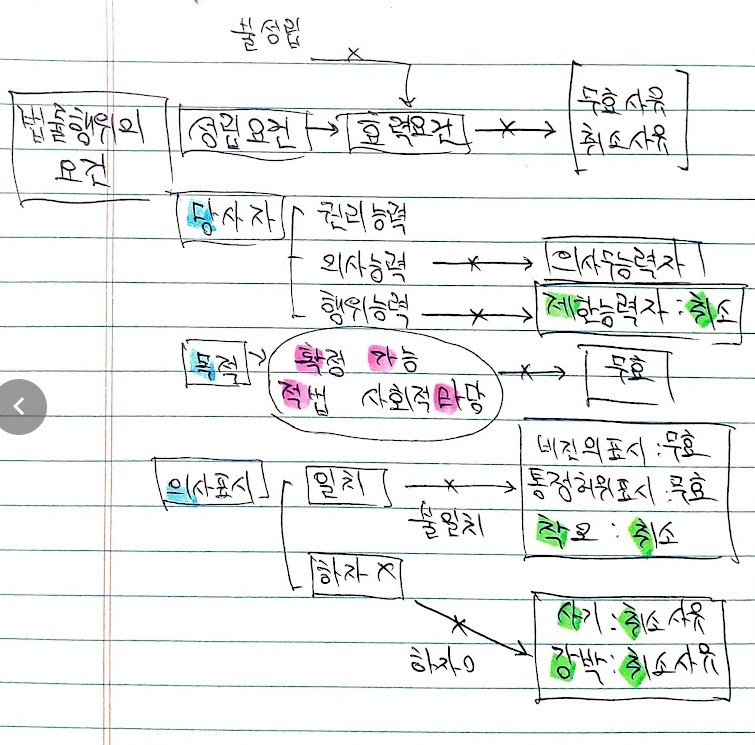 불성립
x
법률행위의
요건
성립요건 → 효력요건 x→ 무효사유
취소사유
당사자 권리능력
의사능력 x→ 의사무능력자
행위능력 x→ 제한능력자 : 취소
목적 → 확정 가능
적법 사회적타당 x→ 무효
의사표시 일치 x→ 비진의표시 : 무효
불일치 통정허위표시 : 무효
착오 : 취소
하자 x
x 사기 : 취소사유
하자O 강박 : 취소사유